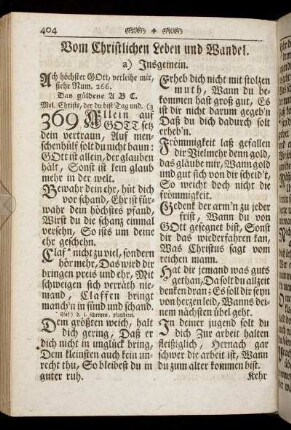 404
Vom Christlichen Leben und Wandel.
a) Insgemein.
Ach höchster GOtt, verleihe mir,
siehe Num. 266.
Das güldene A B C.
Mel. Christe, der du bist Tag und. (3
369 Allein auf
GOTT setz
dein vertraun, Auf men-
schenhülf solt du nicht baun:
GOtt ist allein, der glauben
hält, Sonst ist kein glaub
mehr in der welt.
Bewahr dein ehr, hüt dich
vor schand, Ehr ist für-
wahr dein höchstes pfand,
Wirst du die schanz einmal
versehn, So ists um deine
ehr geschehn.
Claff nicht zu viel, sondern
hör mehr, Das wird dir
bringen preis und ehr, Mit
schweigen sich verräth nie-
mand, Claffen bringt
manch'n in sünd und schand.
Dem größten weich, halt
dich gering, Daß er
dich nicht in unglück bring,
Dem kleinsten auch kein un-
recht thu, So bleibest du in
guter ruh.
Erheb dich nicht mit stolzen
muth, Wann du be-
kommen hast groß gut, Es
ist dir nicht darum gegeb'n
Daß du dich dadurch solt
erheb'n.
Frömmigkeit laß gefallen
dir Vielmehr denn gold,
das gläube mir, Wann gold
und gut sich von dir scheid't,
So weicht doch nicht die
frömmigkeit.
Gedenk der arm'n zu jeder
frist, Wann du von
GOtt gesegnet bist, Sonst
dir das wiederfahren kan,
Was Christus sagt vom
reichen mann.
Hat dir jemand was guts
gethan, Da solt du allzeit
denken dran: Es soll dir seyn
von herzen leid, Wanns dei-
nem nächsten übel geht.
In deiner jugend solt du
dich Zur arbeit halten
fleißiglich, Hernach gar
schwer die arbeit ist, Wann
du zum alter kommen bist.
Kehr